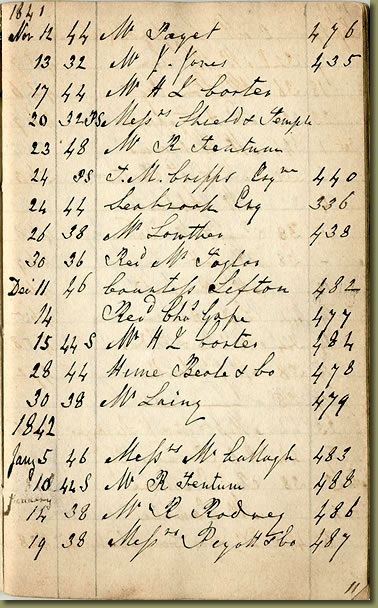 1841
Nov 12 44 Mr Paget 476
13 32 Mr J. Jones 435
17 44 Mr H L
20 32 PS Messrs Shield & Temple
23 48 Mr R Fentum
24 PS T. M. Cripps Esqre 440
24 44 Seabrook Esq 336
26 38 Mr Lowther 438
30 36 Revd Mr Taylor
Dec 11 46 Countess Sefton 482
14 Revd Chas Cope 477
15 44 S Mr H L 484
28 44 Hime Beale & Co 478
30 38 Mr Laing 479
1842
Jany 5 46 Messrs Mc Cullagh 483
10 44 S Mr R Fentum 488
January
14 38 Mr R Rodney 486
19 38 Messrs & Co 487
11